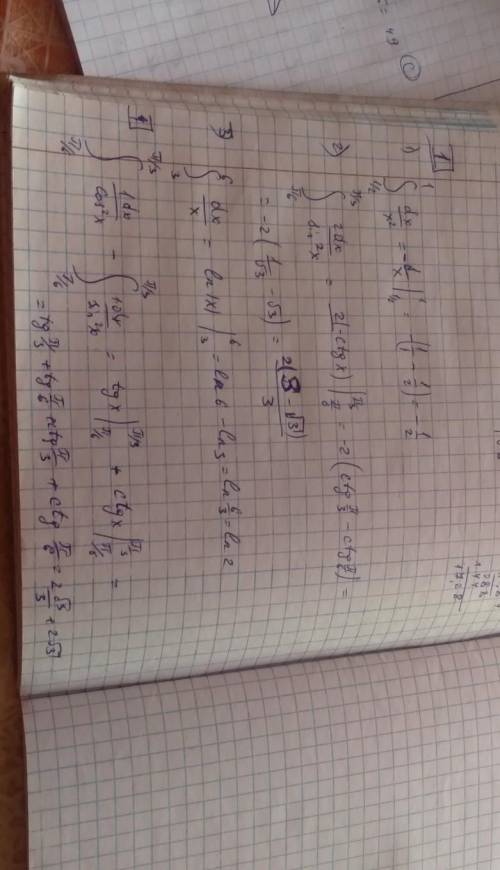 1
1) ∫_{1/2}^{1} dx/x² = -1/x |_{1/2}^{1} = -(1/1 - 1/2) = -1/2
2) ∫_{π/6}^{π/3} 2dx/sin²x = 2(-ctg x) |_{π/6}^{π/3} = -2(ctg π/3 - ctg π/6) =
= -2(1/√3 - √3) =
3) ∫_{3}^{6} dx/x = ln|x| |_{3}^{6} = ln 6 - ln 3 = ln 6/3 = ln 2
∫_{π/6}^{π/3} 1dx/cos²x - ∫_{π/6}^{π/3} 1dx/sin²x = tg x |_{π/6}^{π/3} + ctg x |_{π/6}^{π/3} =
= tg π/3 + tg π/6 + ctg π/3 + ctg π/6 = 2√3/3 + 2√3
49
C